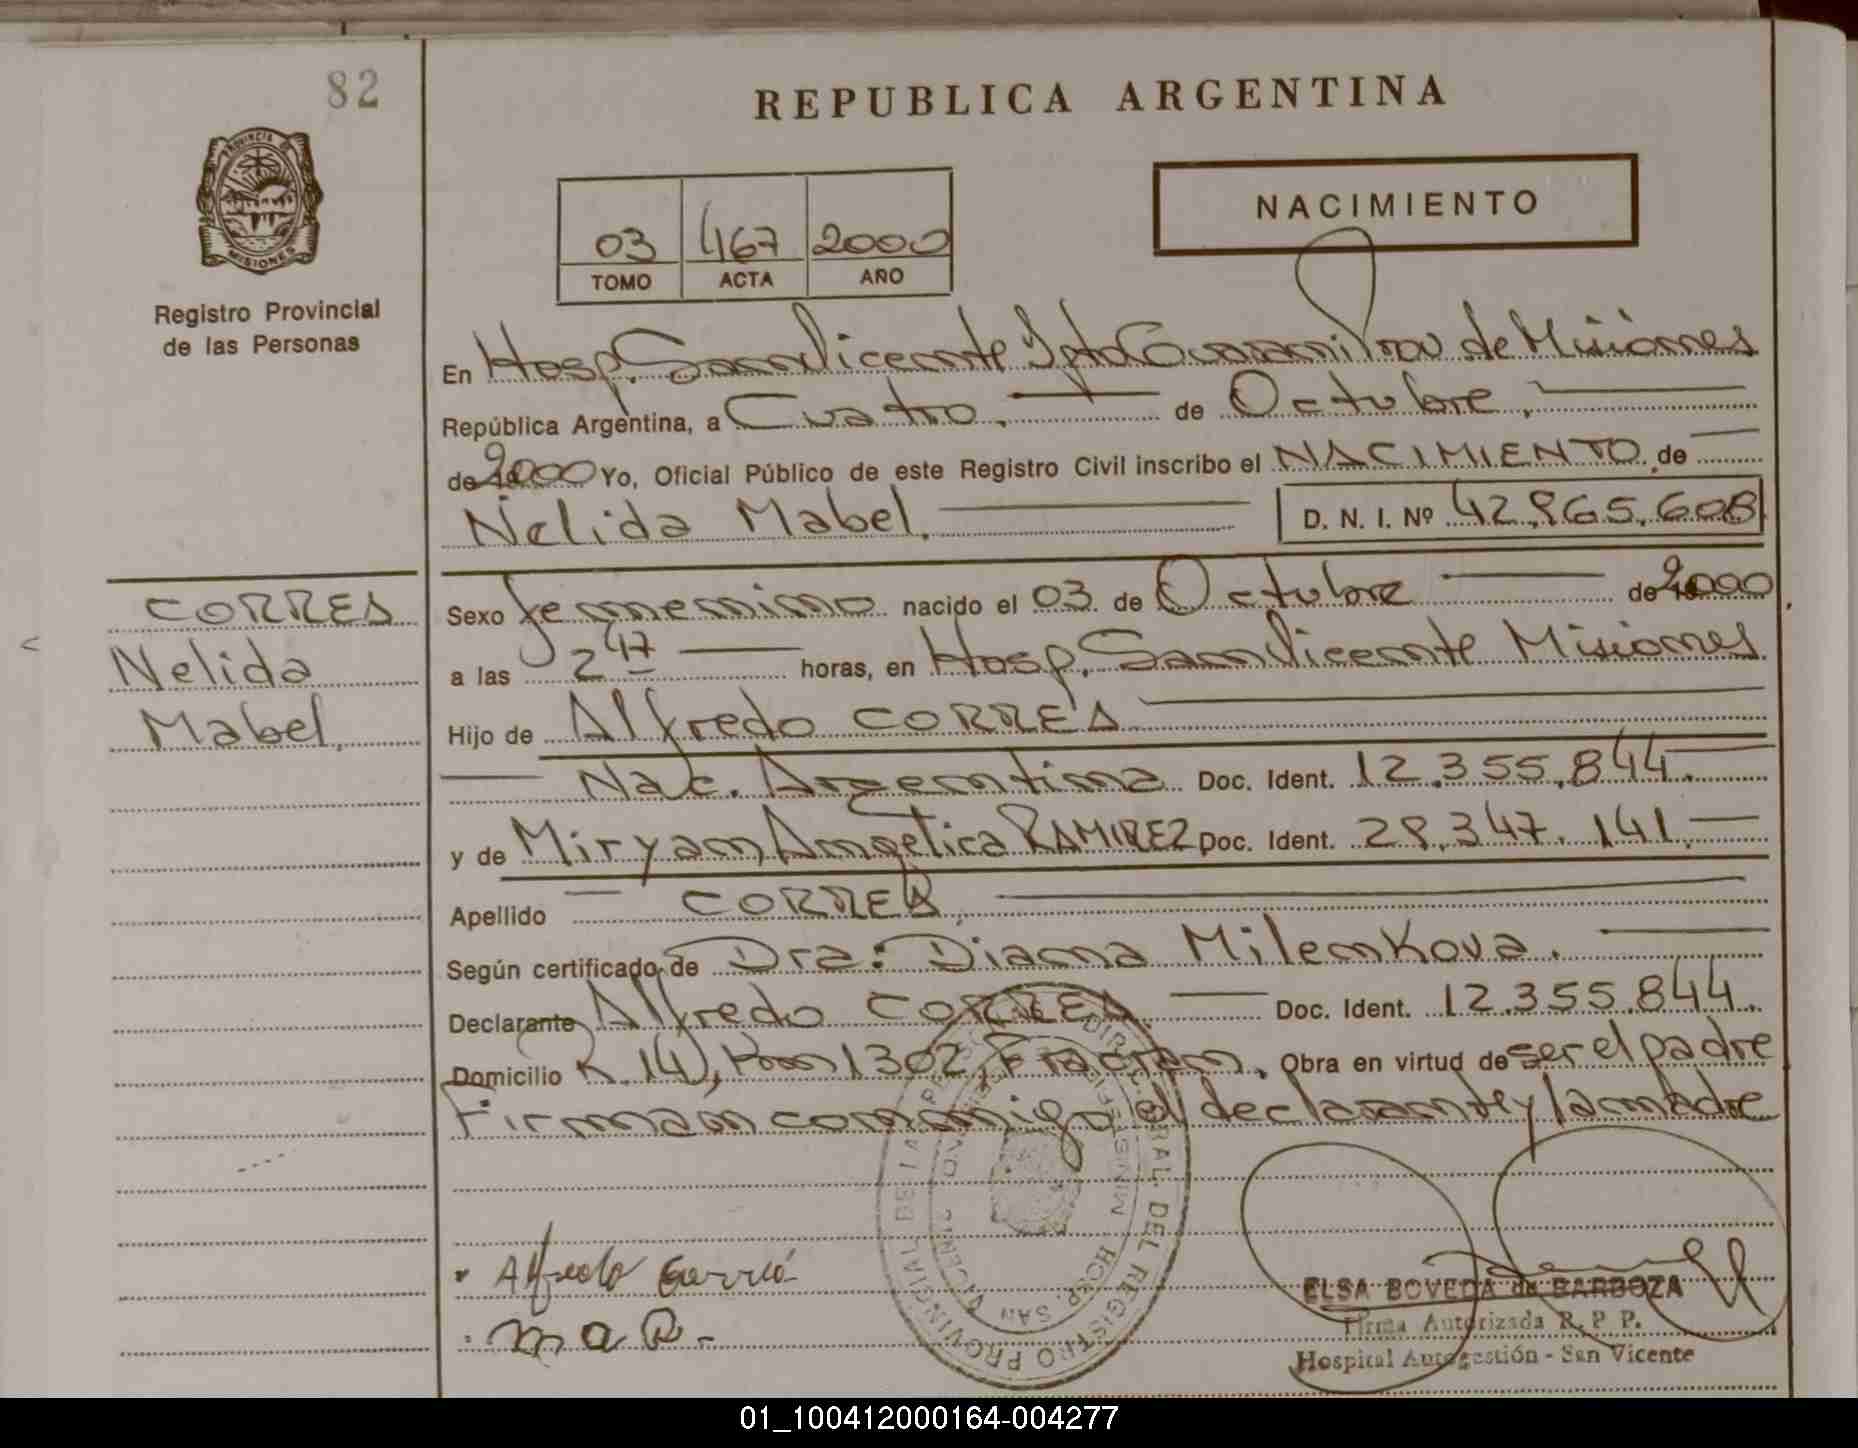 82
REPUBLICA ARGENTINA
PROVINCIA DE
MISIONES
Registro Provincial
de las Personas
03 467 2000
TOMO ACTA AÑO
NACIMIENTO
En Hosp. San Vicente Dpto Guarani Prov de Misiones
República Argentina, a Cuatro. de Octubre.
de 2000 Yo, Oficial Público de este Registro Civil inscribo el NACIMIENTO de
Nelida Mabel. D. N. I. Nº 42.865.608
CORREA
Nelida
Mabel.
Sexo femenino nacido el 03 de Octubre de 2000
a las 2 47 horas, en Hosp. San Vicente Misiones
Hijo de Alfredo CORREA
Nac. Argentina Doc. Ident. 12.355.844.
y de Miryam Angelica RAMIREZ Doc. Ident. 28.347.141.
Apellido CORREA.
Según certificado de Dra: Diana Milenkova.
Declarante Alfredo CORREA. Doc. Ident. 12.355.844.
Domicilio R. 14, Km 1302, Fracran. Obra en virtud de ser el padre
Firman conmigo el declarante y la madre
Alfredo Correa
M a R.
HOSP. SAN VICENTE
ELSA BOVEDA de BARBOZA
Firma Autorizada R. P. P.
Hospital Autogestión - San Vicente
01_100412000164-004277